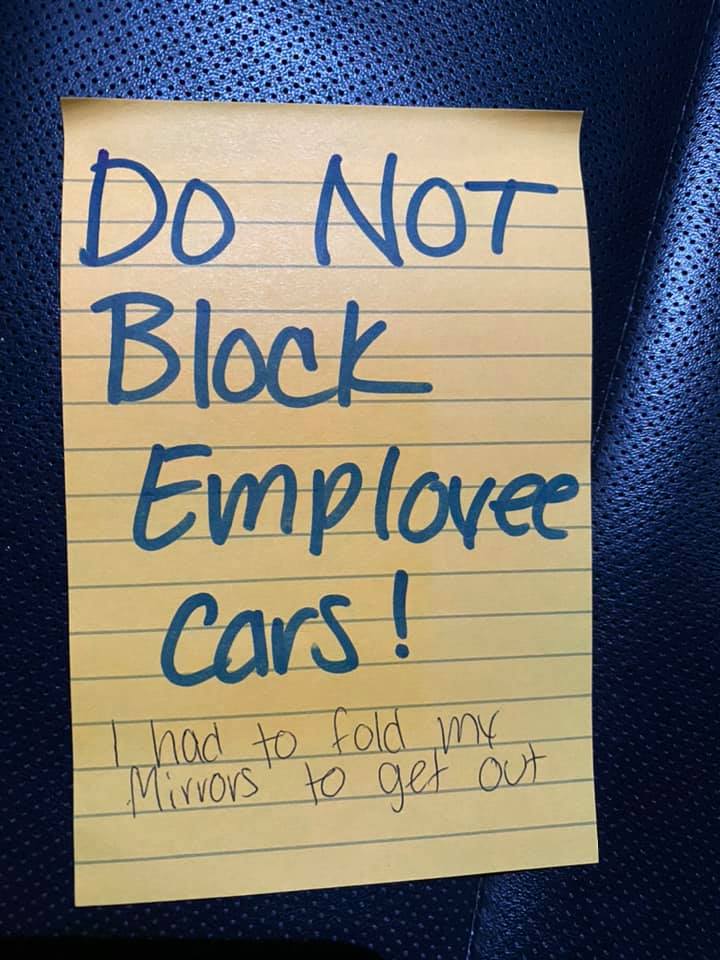 DO NOT
Block
Employee
Cars!
I had to fold my
Mirrors to get out